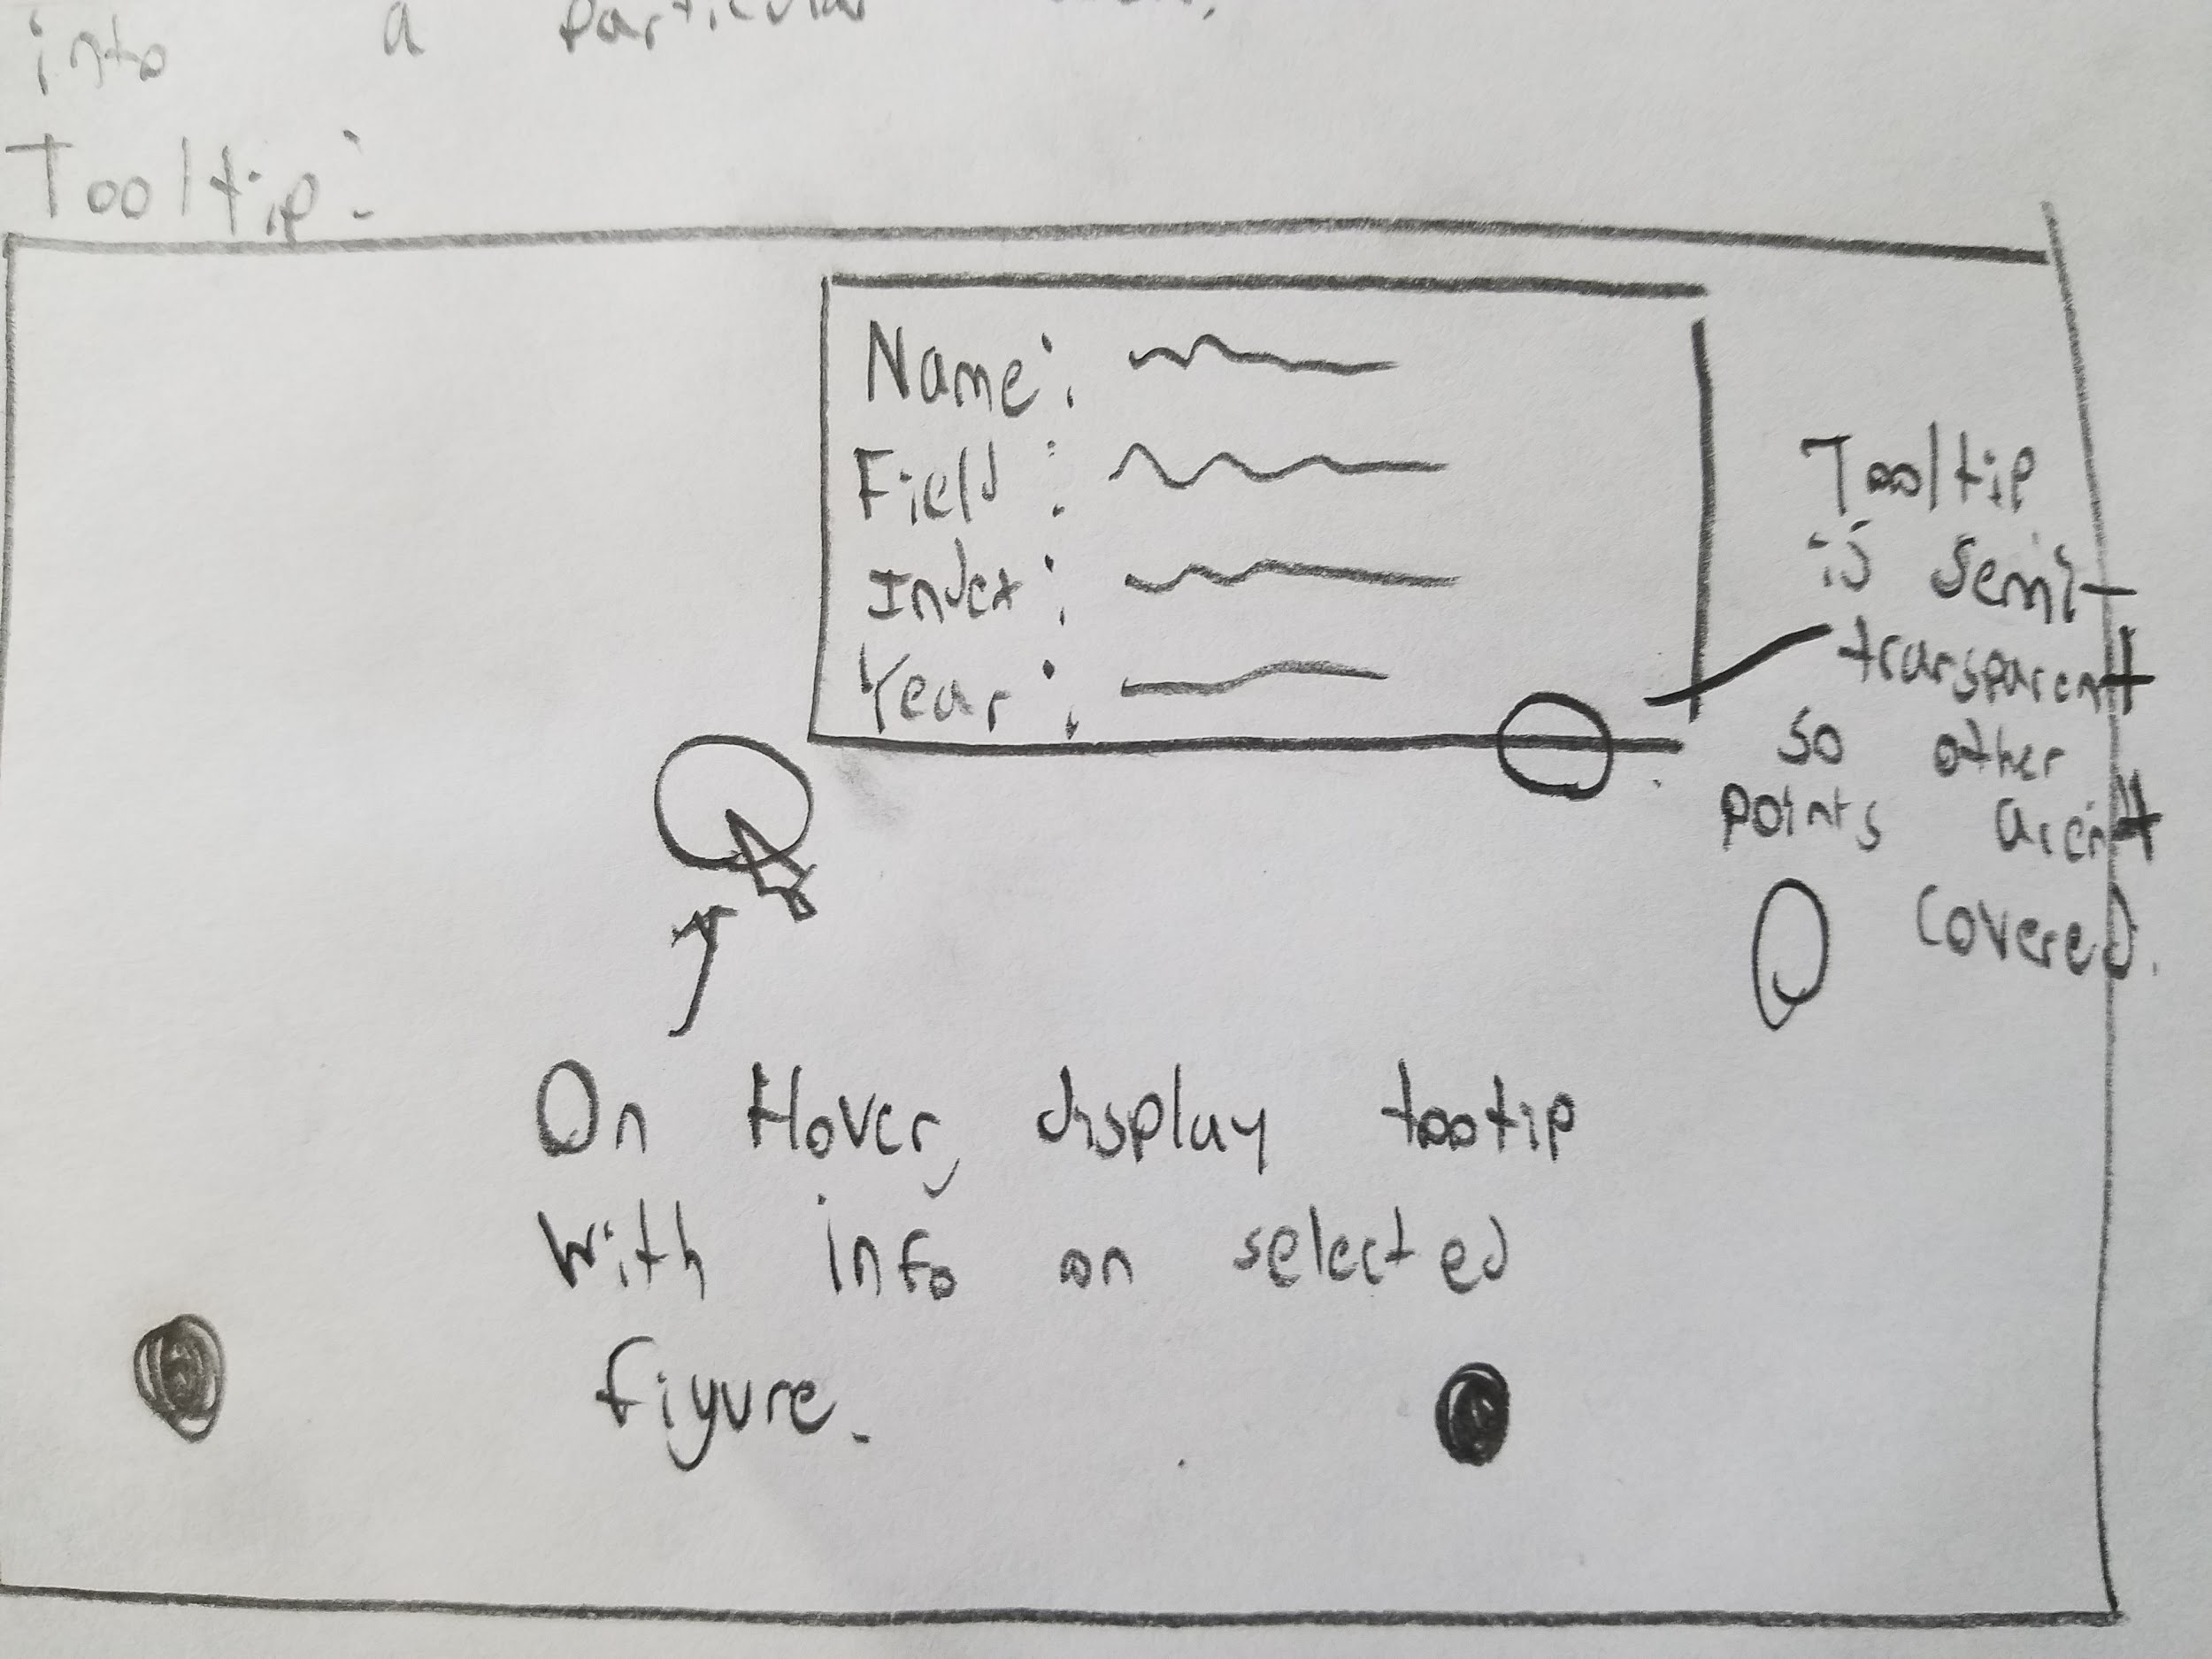 into a particular
Tooltip:
Name:
Field:
Index:
Year:
Tooltip
is semi-
transparent
so other
points aren't
covered.
On Hover, display tootip
with info on selected
figure.